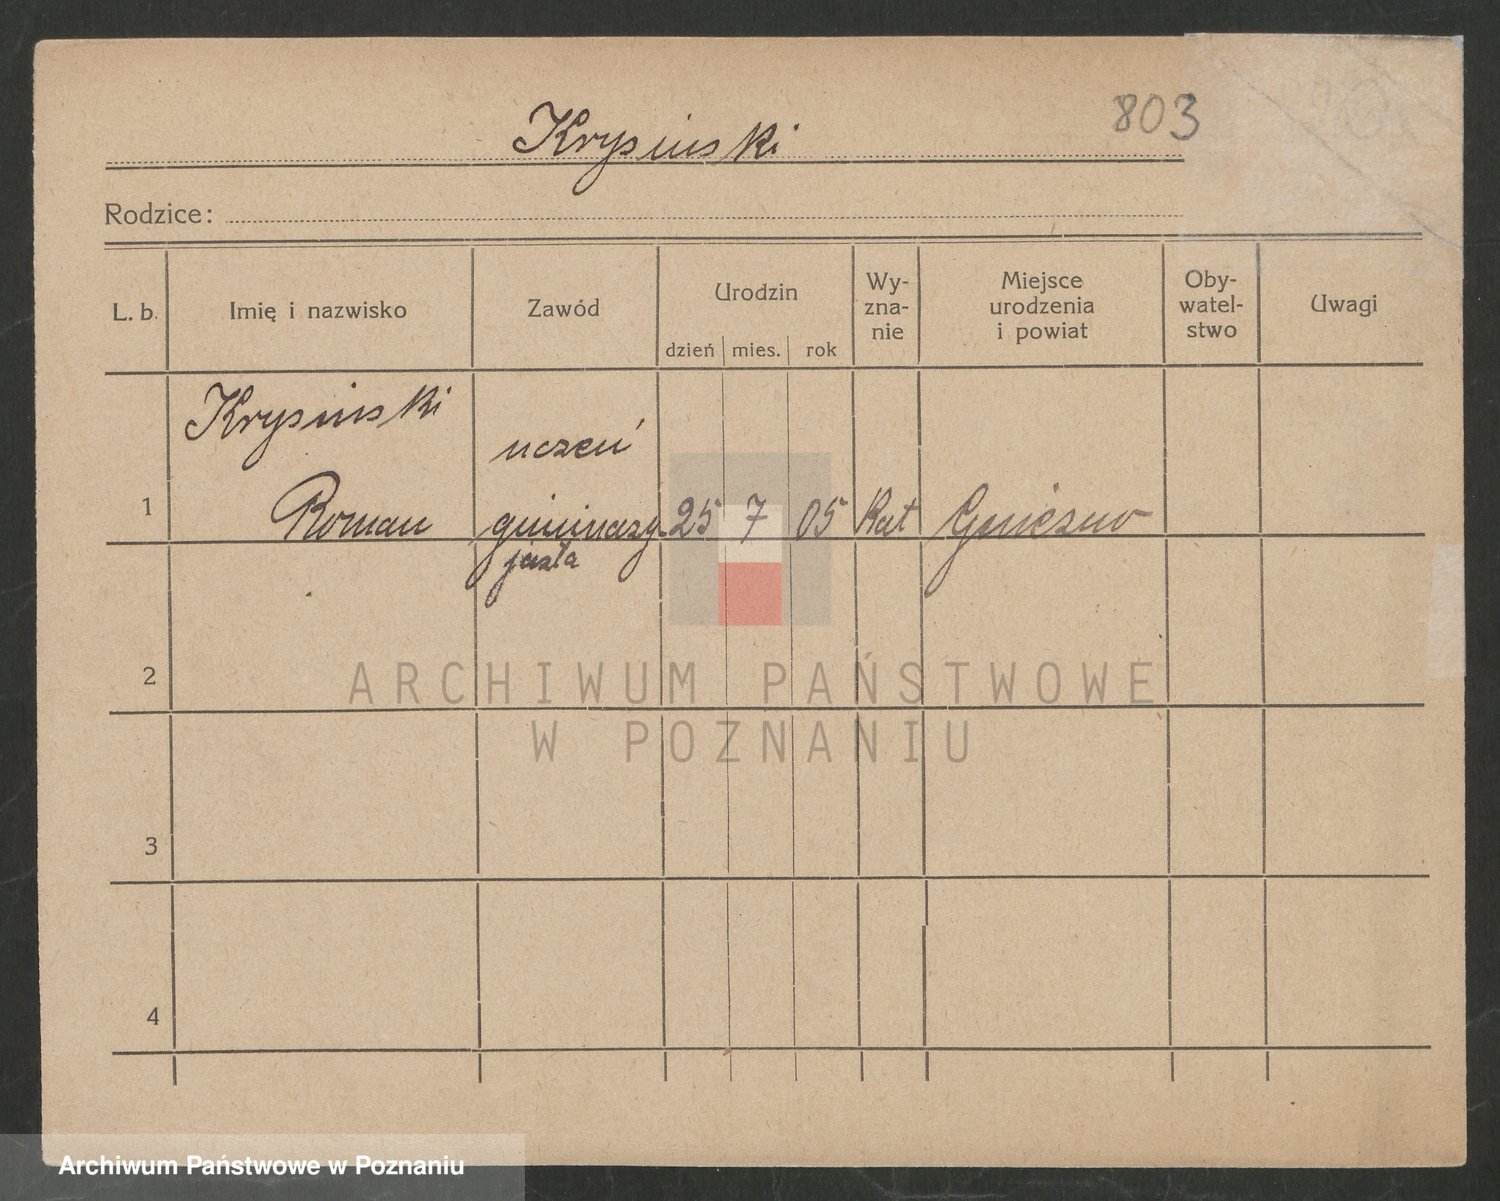 803
Krysinski
Rodzice:
L. b.
Imię i nazwisko
Zawód
Urodzin
dzień
mies.
rok
Wy-
zna-
nie
Miejsce
urodzenia
i powiat
Oby-
watel-
stwo
Uwagi
1
Krysinski
Roman
uczeń
25
7
05
Kat
2
3
4
ARCHIWUM PAŃSTWOWE
W POZNANIU
Archiwum Państwowe w Poznaniu